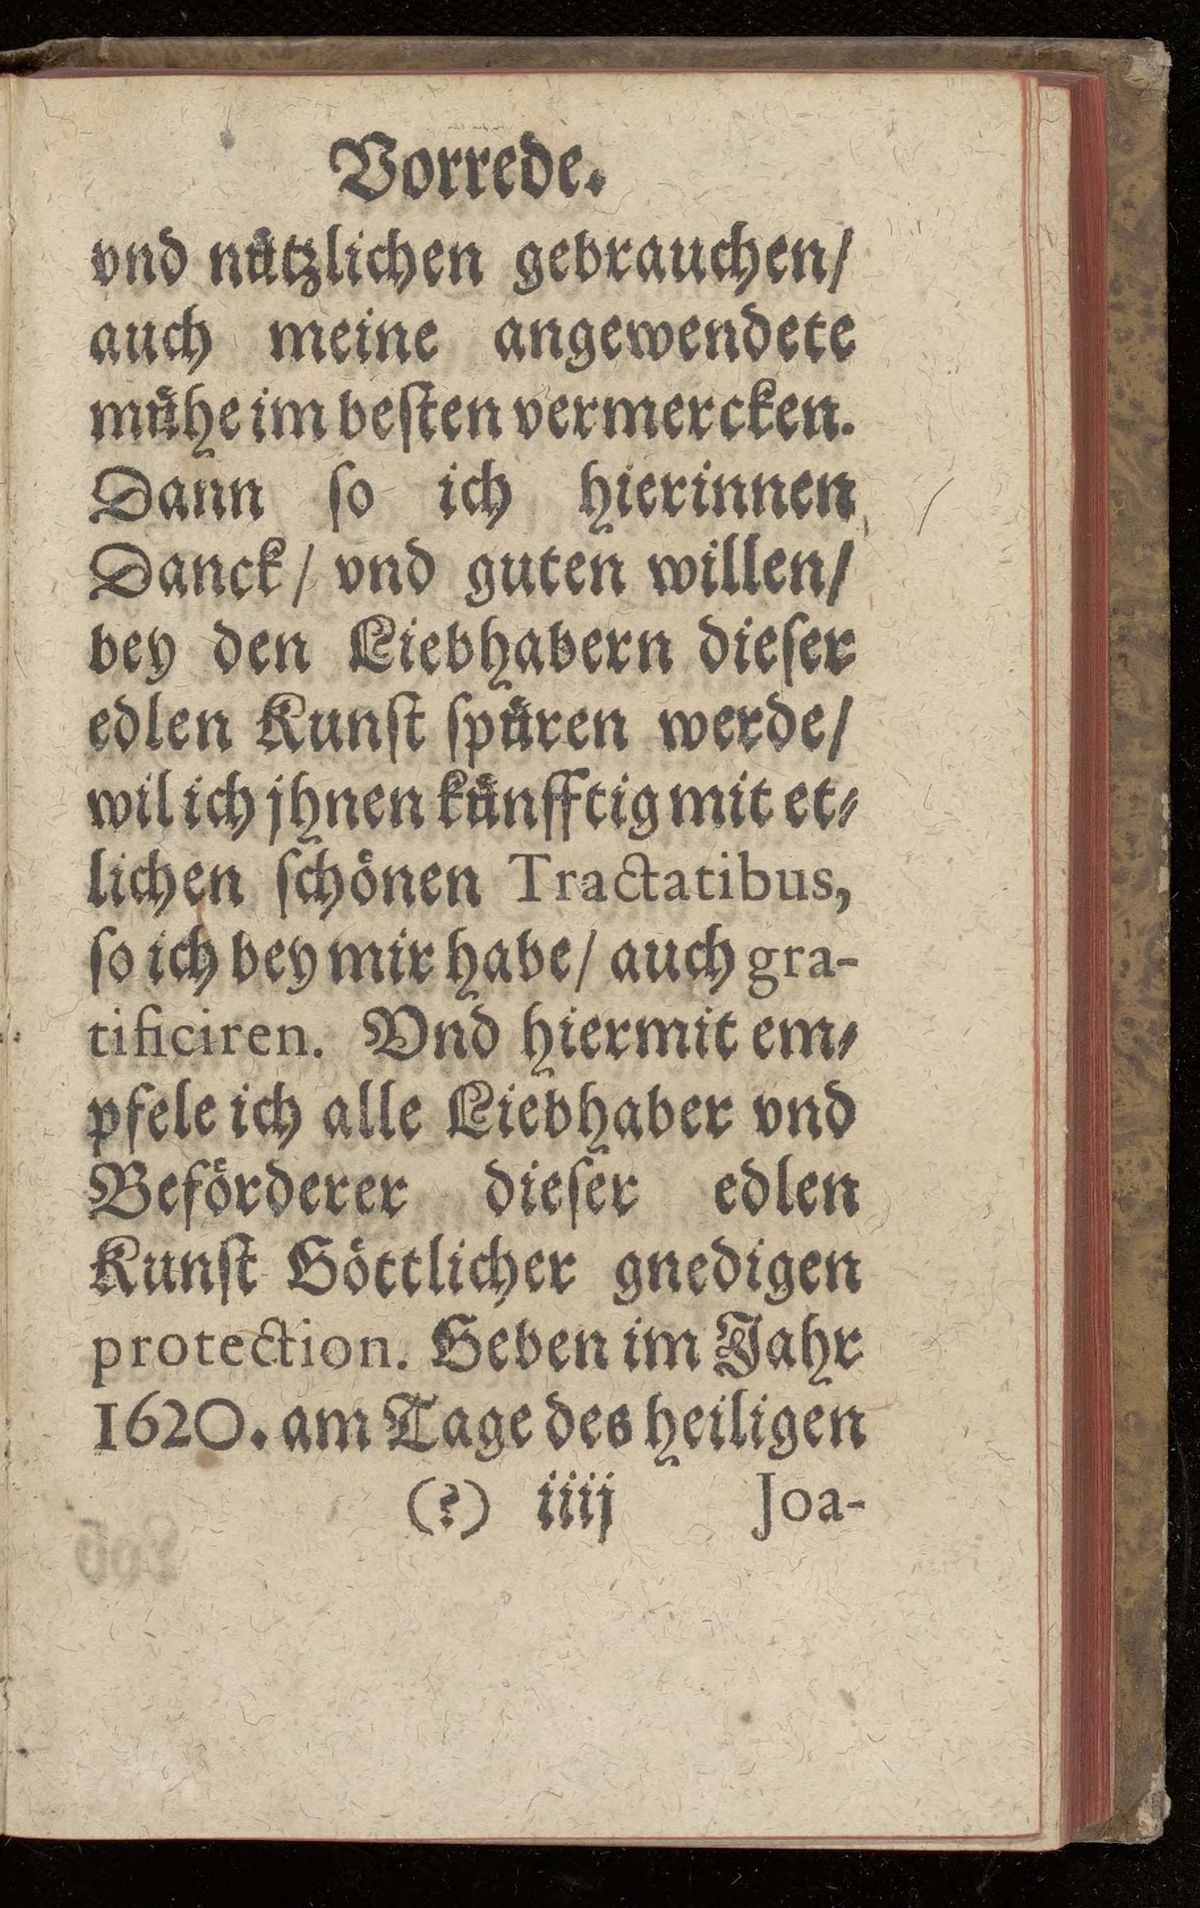 Vorrede.
vnd nuͤtzlichen gebrauchen/
auch meine angewendete
muͤhe im beſten vermercken.
Dann ſo ich hierinnen
Danck/ vnd guten willen/
bey den Liebhabern dieſer
edlen Kunſt ſpuͤren werde/
wil ich jhnen kuͤnfftig mit et⸗
lichen ſchoͤnen Tractatibus,
ſo ich bey mir habe/ auch gra-
tificiren. Vnd hiermit em⸗
pfele ich alle Liebhaber vnd
Befoͤrderer dieſer edlen
Kunſt Goͤttlicher gnedigen
protection. Geben im Jahr
1620. am Tage des heiligen
(?) iiij Joa-